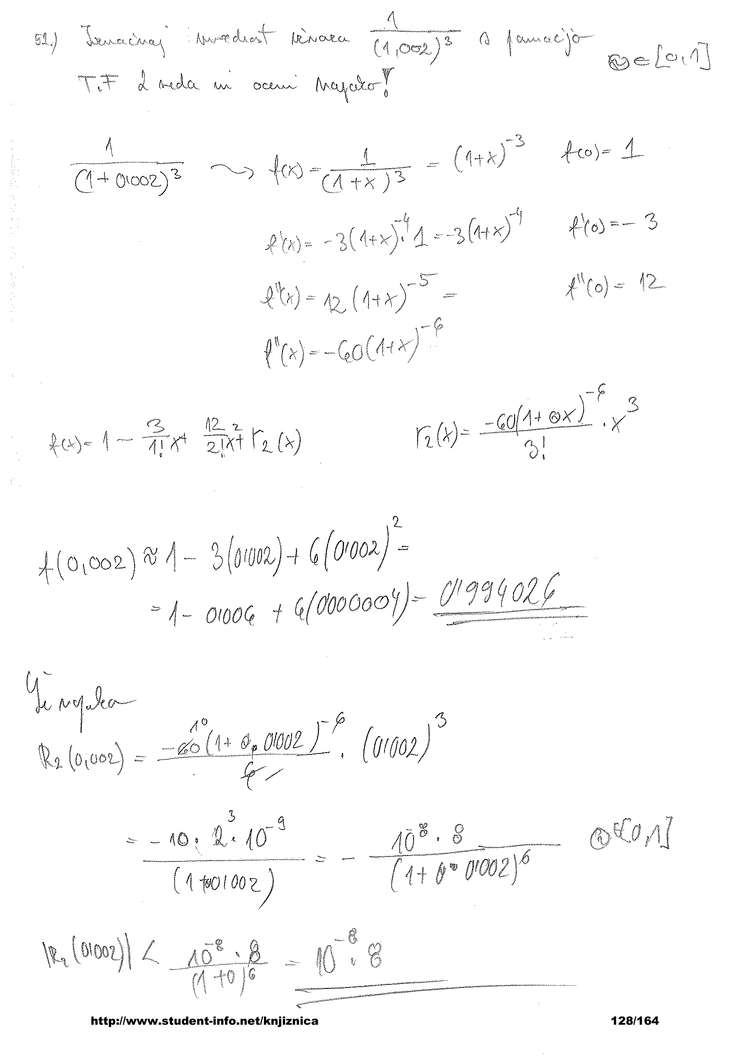 52.) Izračunaj vrednost izraza 1/(1,002)³ s pomočjo Θ∈[0,1]
T.F 2 reda in oceni napako!
1/(1+0,002)³ ⤳ f(x) = 1/(1+x)³ = (1+x)⁻³ f(0) = 1
f'(x) = -3(1+x)⁻⁴·1 = -3(1+x)⁻⁴ f'(0) = -3
f''(x) = 12(1+x)⁻⁵ = f''(0) = 12
f''(x) = -60(1+x)⁻⁶
f(x) = 1 - 3/1! x + 12/2! x² + r₂(x) r₂(x) = -60(1+Θx)⁻⁶/3! · x³
f(0,002) ≈ 1 - 3(0,002) + 6(0,002)² =
= 1 - 0,006 + 6(0,000004) = 0,994026
Še napaka
R₂(0,002) = -60 10 (1+Θ·0,002)⁻⁶/6 · (0,002)³
= -10·2³·10⁻⁹/(1+0,002) = - 10⁻⁸·8/(1+Θ·0,002)⁶ Θ∈[0,1]
|R₂(0,002)| < 10⁻⁸·8/(1+0)⁶ = 10⁻⁸·8
http://www.student-info.net/knjiznica 128/164